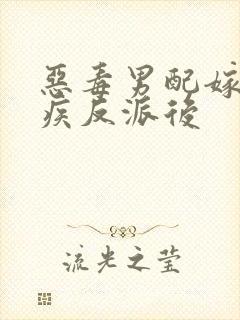 惡毒男配嫁
疾反派後
流光之莹